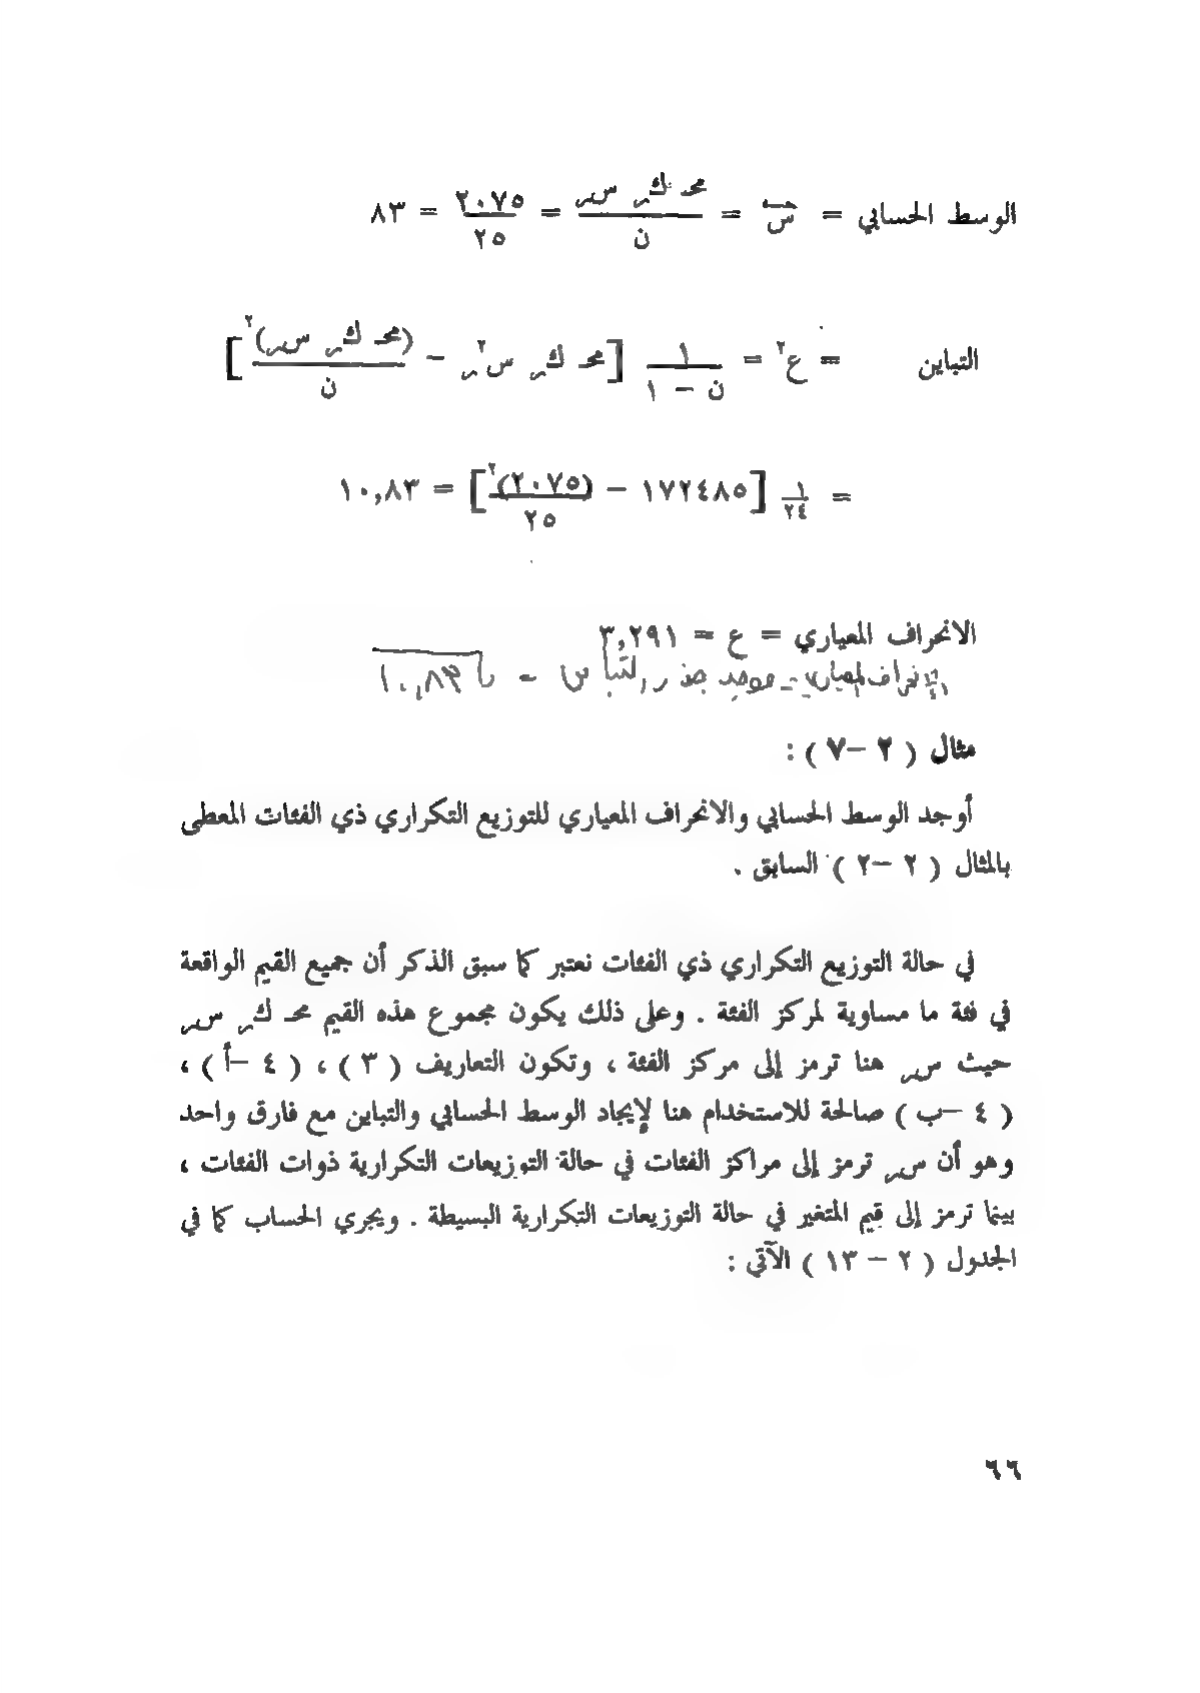 الوسط الحسابي = س̄ = محـ كر سر / ن = ٢٠٧٥ / ٢٥ = ٨٣
التباين = ع² = ١ / (ن – ١) [محـ كر س²ر – (محـ كر سر)² / ن]
= ١/٢٤ [١٧٢٤٨٥ – (٢٠٧٥)² / ٢٥] = ١٠,٨٣
الانحراف المعياري = ع = ٣,٢٩١
نوجد جذر التباين = √١٠,٨٣
مثال ( ٢ –٧ ) :
أوجد الوسط الحسابي والانحراف المعياري للتوزيع التكراري ذي الفئات المعطى
بالمثال ( ٢ –٢ ) السابق .
في حالة التوزيع التكراري ذي الفئات نعتبر كما سبق الذكر أن جميع القيم الواقعة
في فئة ما مساوية لمركز الفئة . وعلى ذلك يكون مجموع هذه القيم محـ كر سر
حيث سر هنا ترمز إلى مركز الفئة ، وتكون التعاريف ( ٣ ) ، ( ٤ –أ ) ،
( ٤ –ب ) صالحة للاستخدام هنا لإيجاد الوسط الحسابي والتباين مع فارق واحد
وهو أن سر ترمز إلى مراكز الفئات في حالة التوزيعات التكرارية ذوات الفئات ،
بينما ترمز إلى قيم المتغير في حالة التوزيعات التكرارية البسيطة . ويجري الحساب كما في
الجدول ( ٢ – ١٣ ) الآتي :
٦٦